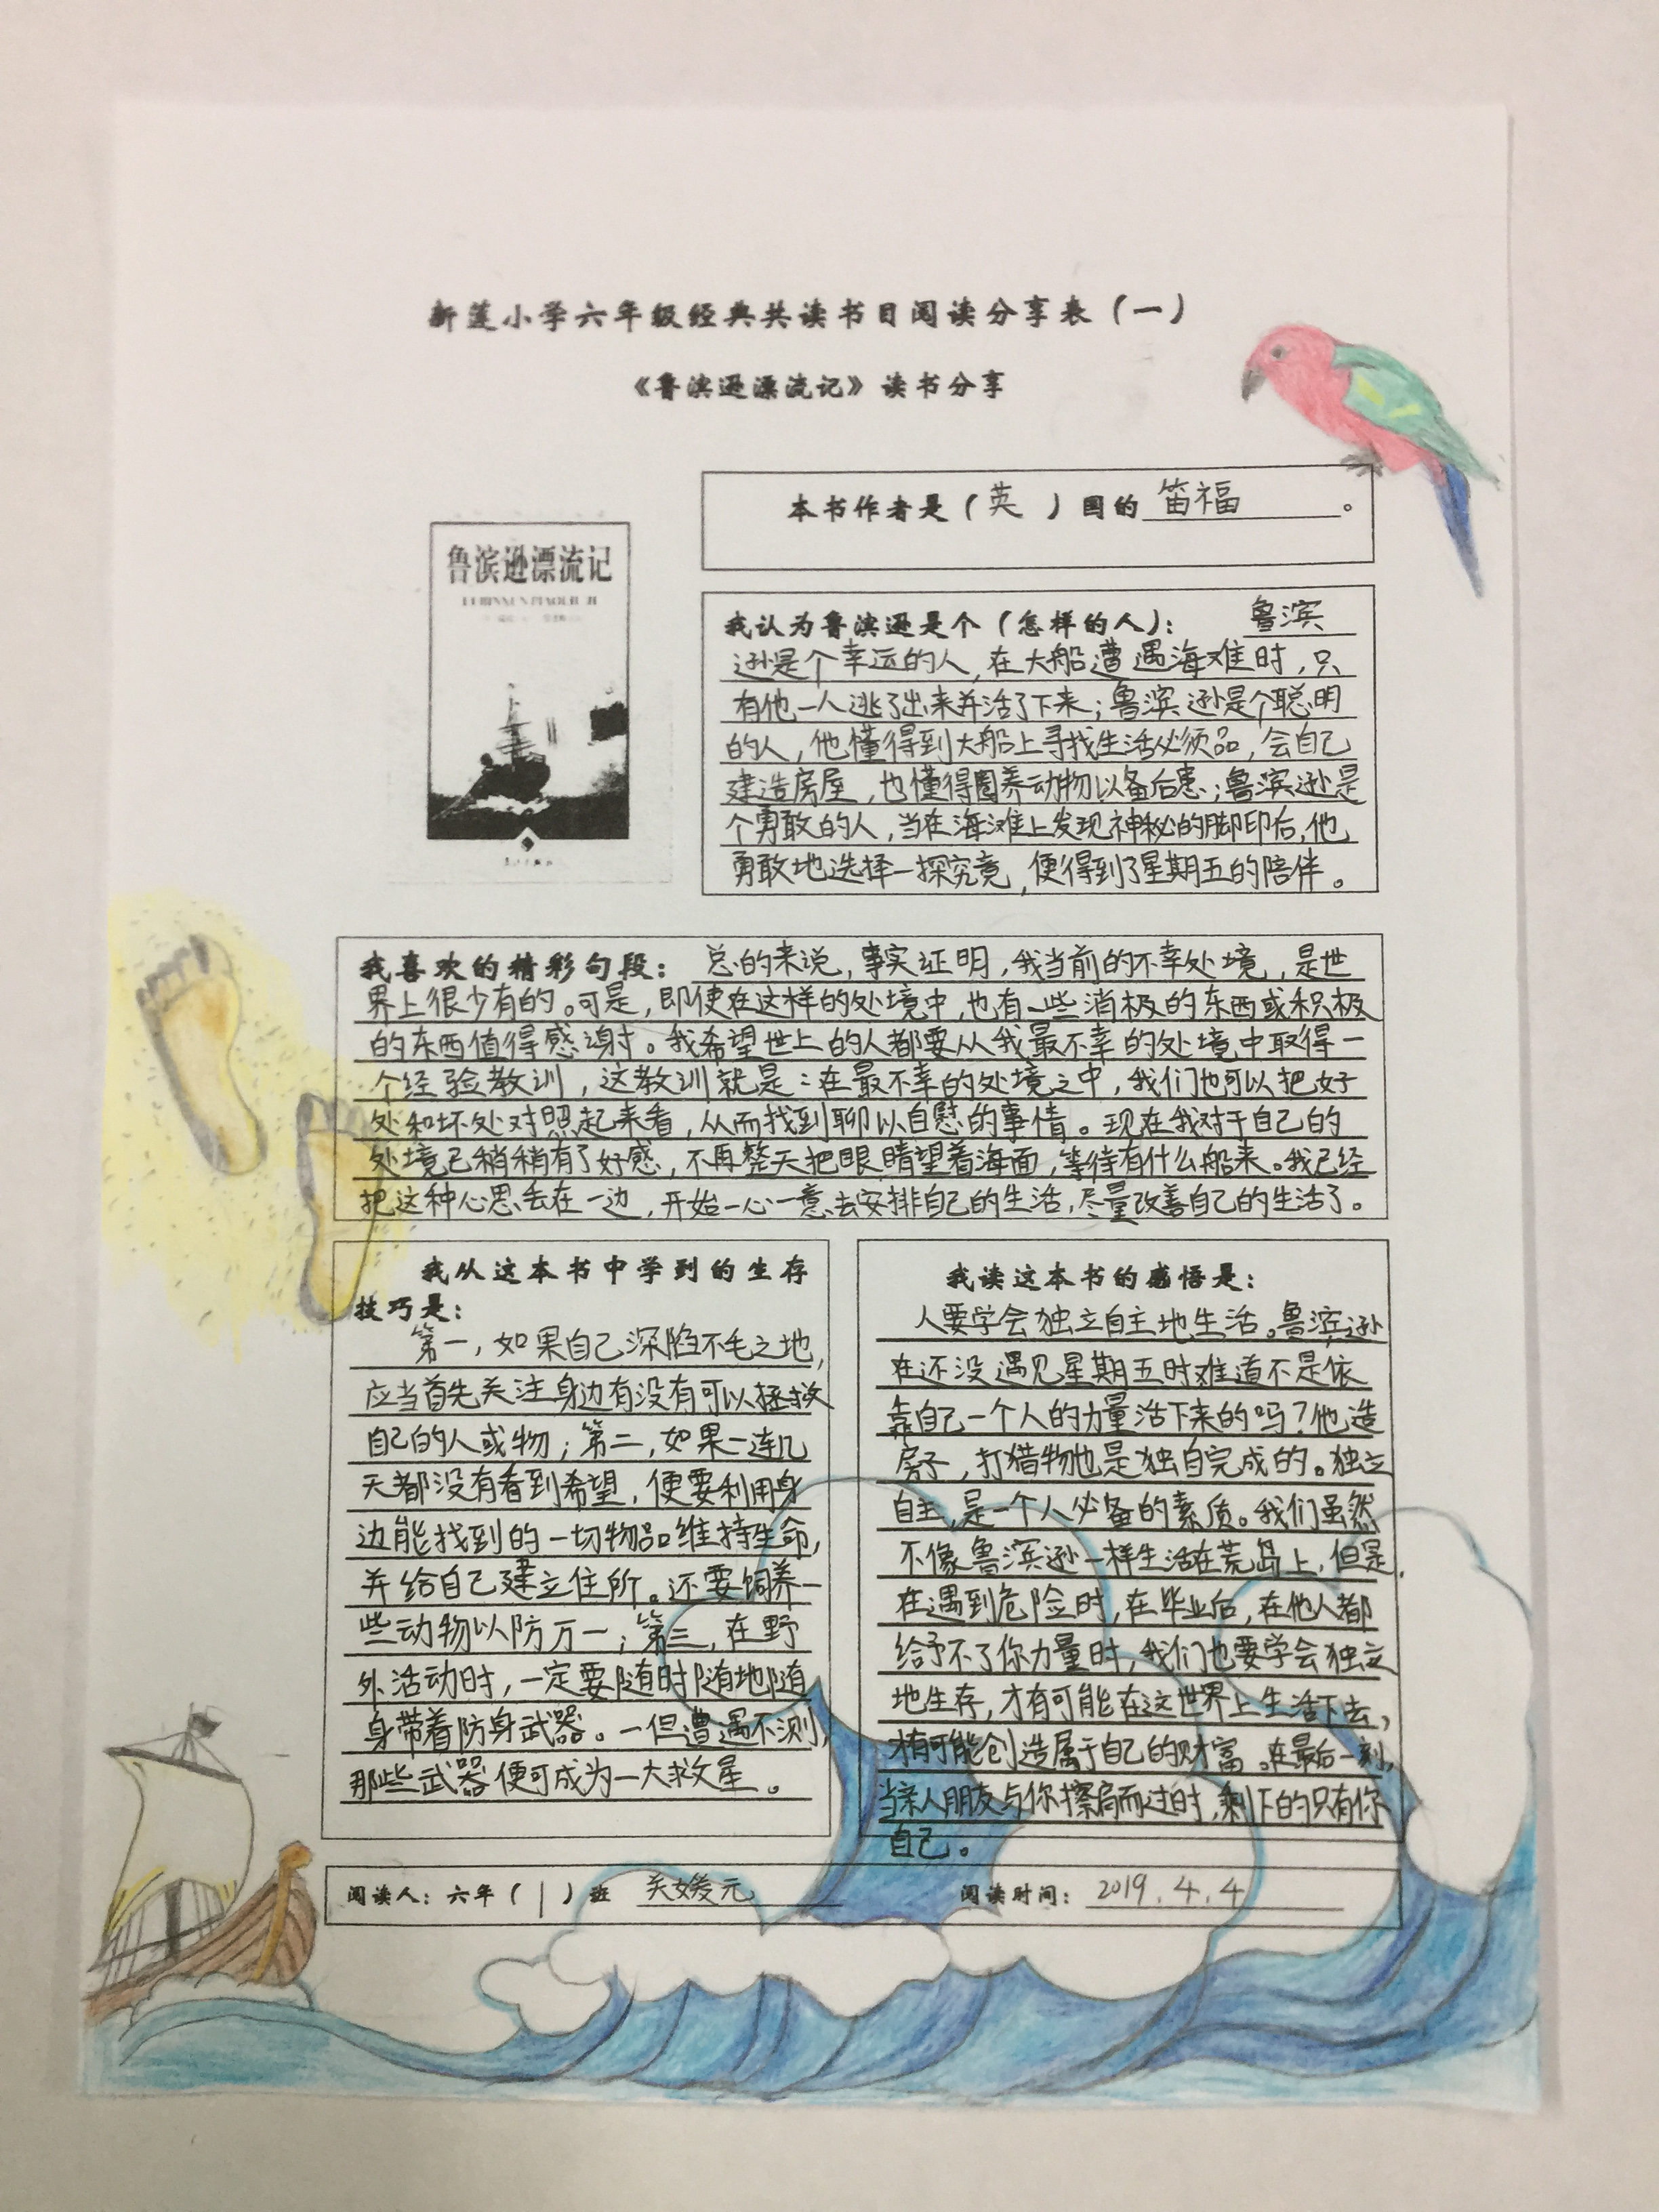 新莲小学六年级经典共读书目阅读分享表（一）
《鲁滨逊漂流记》读书分享
本书作者是（英）国的 笛福 。
鲁滨逊漂流记
我认为鲁滨逊是个（怎样的人）： 鲁滨
逊是个幸运的人，在大船遭遇海难时，只
有他一人逃了出来并活了下来；鲁滨逊是个聪明
的人，他懂得到大船上寻找生活必须品，会自己
建造房屋，也懂得圈养动物以备后患；鲁滨逊是
个勇敢的人，当在海滩上发现神秘的脚印后，他
勇敢地选择一探究竟，便得到了星期五的陪伴。
我喜欢的精彩句段：总的来说，事实证明，我当前的不幸处境，是世
界上很少有的。可是，即使在这样的处境中，也有一些消极的东西或积极
的东西值得感谢。我希望世上的人都要从我最不幸的处境中取得一
个经验教训，这教训就是：在最不幸的处境之中，我们也可以把好
处和坏处对照起来看，从而找到聊以自慰的事情。现在我对于自己的
处境已稍稍有了好感，不再整天把眼睛望着海面，等待有什么船来。我已经
把这种心思丢在一边，开始一心一意去安排自己的生活，尽量改善自己的生活了。
我从这本书中学到的生存
技巧是：
第一，如果自己深陷不毛之地，
应当首先关注身边有没有可以拯救
自己的人或物；第二，如果一连几
天都没有看到希望，便要利用身
边能找到的一切物品维持生命，
并给自己建立住所。还要饲养一
些动物以防万一；第三，在野
外活动时，一定要随时随地随
身带着防身武器。一但遭遇不测，
那些武器便可成为一大救星。
我读这本书的感悟是：
人要学会独立自主地生活。鲁滨逊
在还没遇见星期五时难道不是依
靠自己一个人的力量活下来的吗？他造
房子，打猎物也是独自完成的。独立
自主，是一个人必备的素质。我们虽然
不像鲁滨逊一样生活在荒岛上，但是，
在遇到危险时，在毕业后，在他人都
给予不了你力量时，我们也要学会独立
地生存，才有可能在这世界上生活下去，
才有可能创造属于自己的财富。在最后一刻，
当亲人朋友与你擦肩而过时，剩下的只有你
自己。
阅读人：六年（1）班 关媛元 阅读时间：2019.4.4